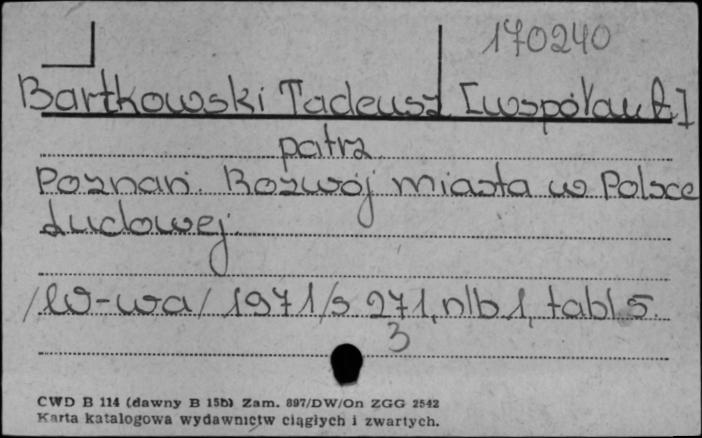 170240
Bartkowski Tadeusz [współaut.]
patrz
Poznań. Rozwój miasta w Polsce
Ludowej.
/W-wa/ 1971/s 271, nlb 1, tabl 5.
3
CWD B 114 (dawny B 15b) Zam. 897/DW/On ZGG 2542
Karta katalogowa wydawnictw ciągłych i zwartych.